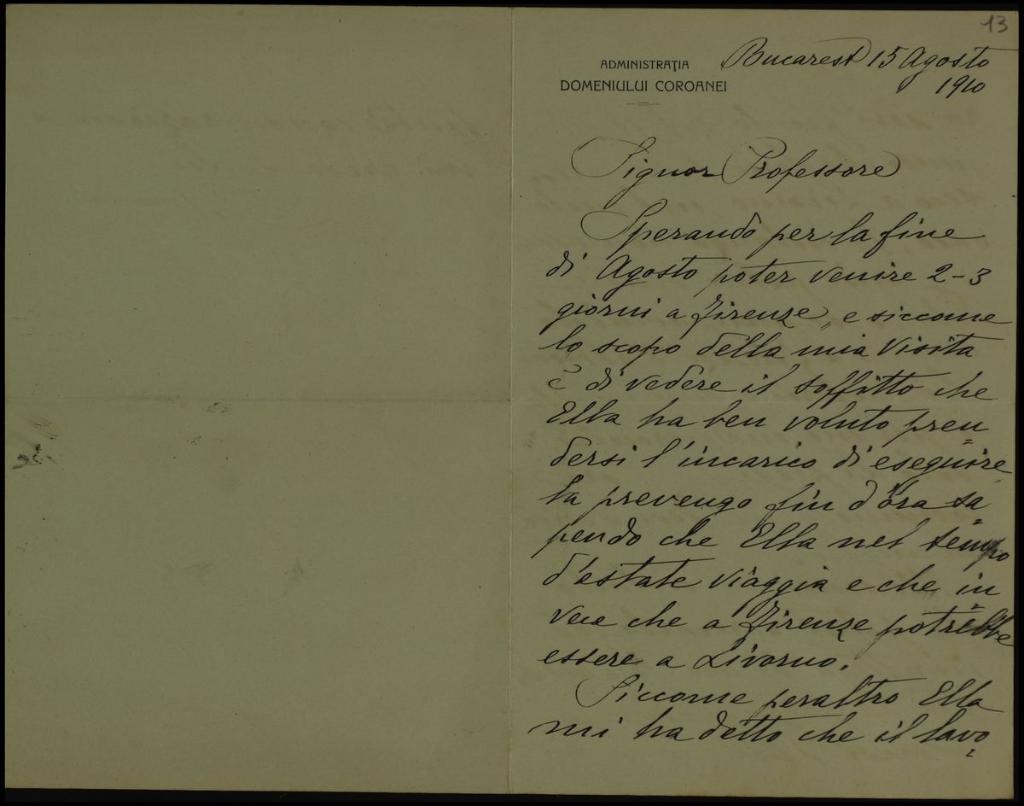 13
ADMINISTRAŢIA
DOMENIULUI COROANEI
Bucarest 15 Agosto
1910
Signor Professore
Sperando per la fine
di Agosto poter venire 2-3
giorni a Firenze, e siccome
lo scopo della mia visita
è di vedere il soffitto che
Ella ha ben voluto pren=
dersi l'incarico di eseguire
la prevengo fin d'ora sa
pendo che Ella nel tempo
d'estate viaggia e che in=
vece che a Firenze potrebbe
essere a Livorno.
Siccome peraltro Ella
mi ha detto che il lavo=